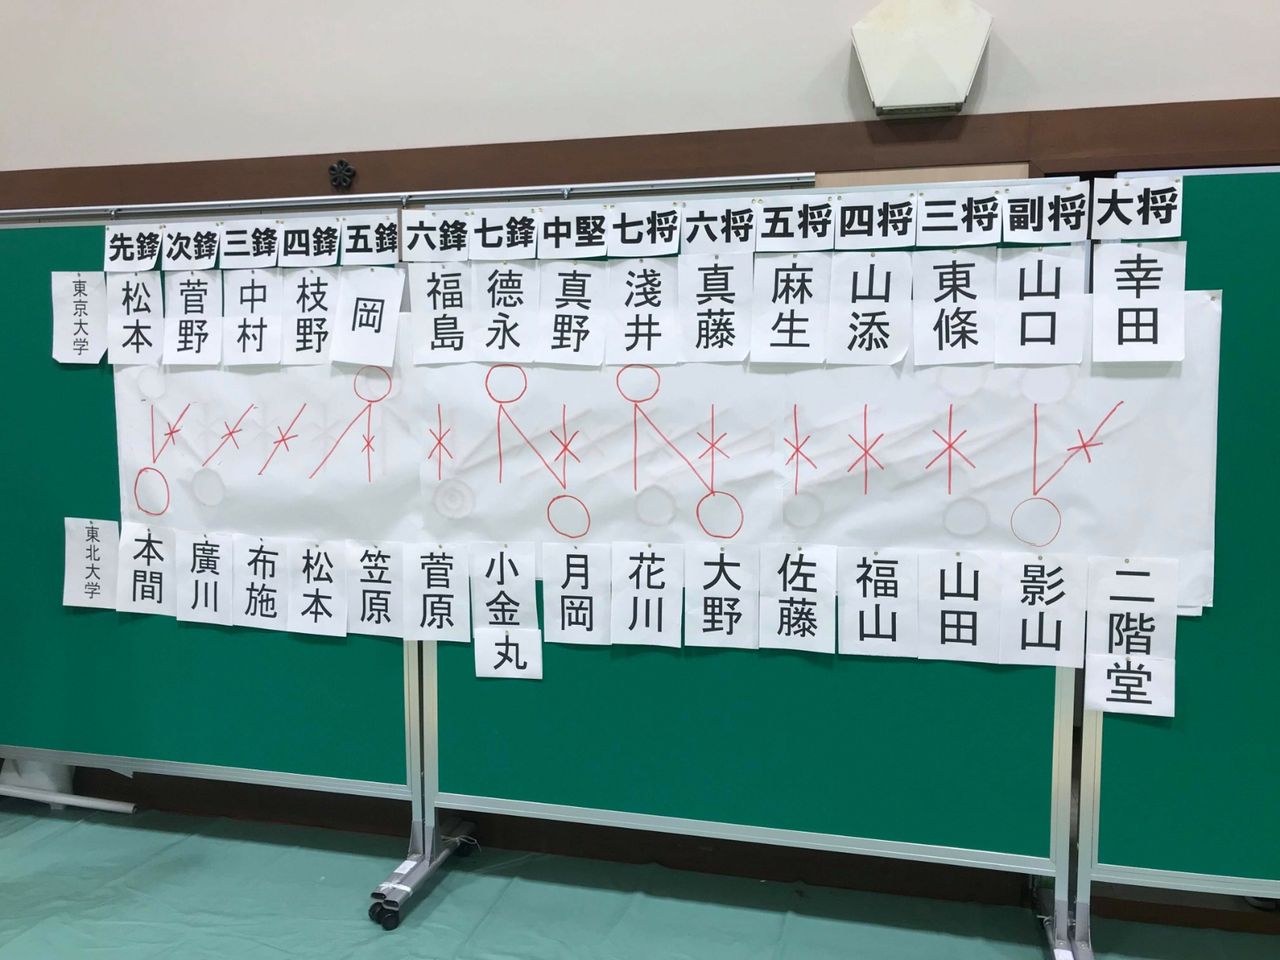 先鋒 次鋒 三鋒 四鋒 五鋒 六鋒 七鋒 中堅 七将 六将 五将 四将 三将 副将 大将
東京大学 松本 菅野 中村 枝野 岡 福島 德永 真野 淺井 真藤 麻生 山添 東條 山口 幸田
東北大学 本間 廣川 布施 松本 笠原 菅原 小金丸 月岡 花川 大野 佐藤 福山 山田 影山 二階堂